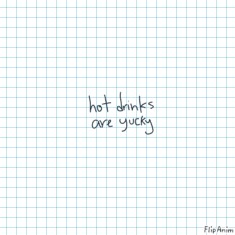 hot drinks
are yucky
FlipAnim